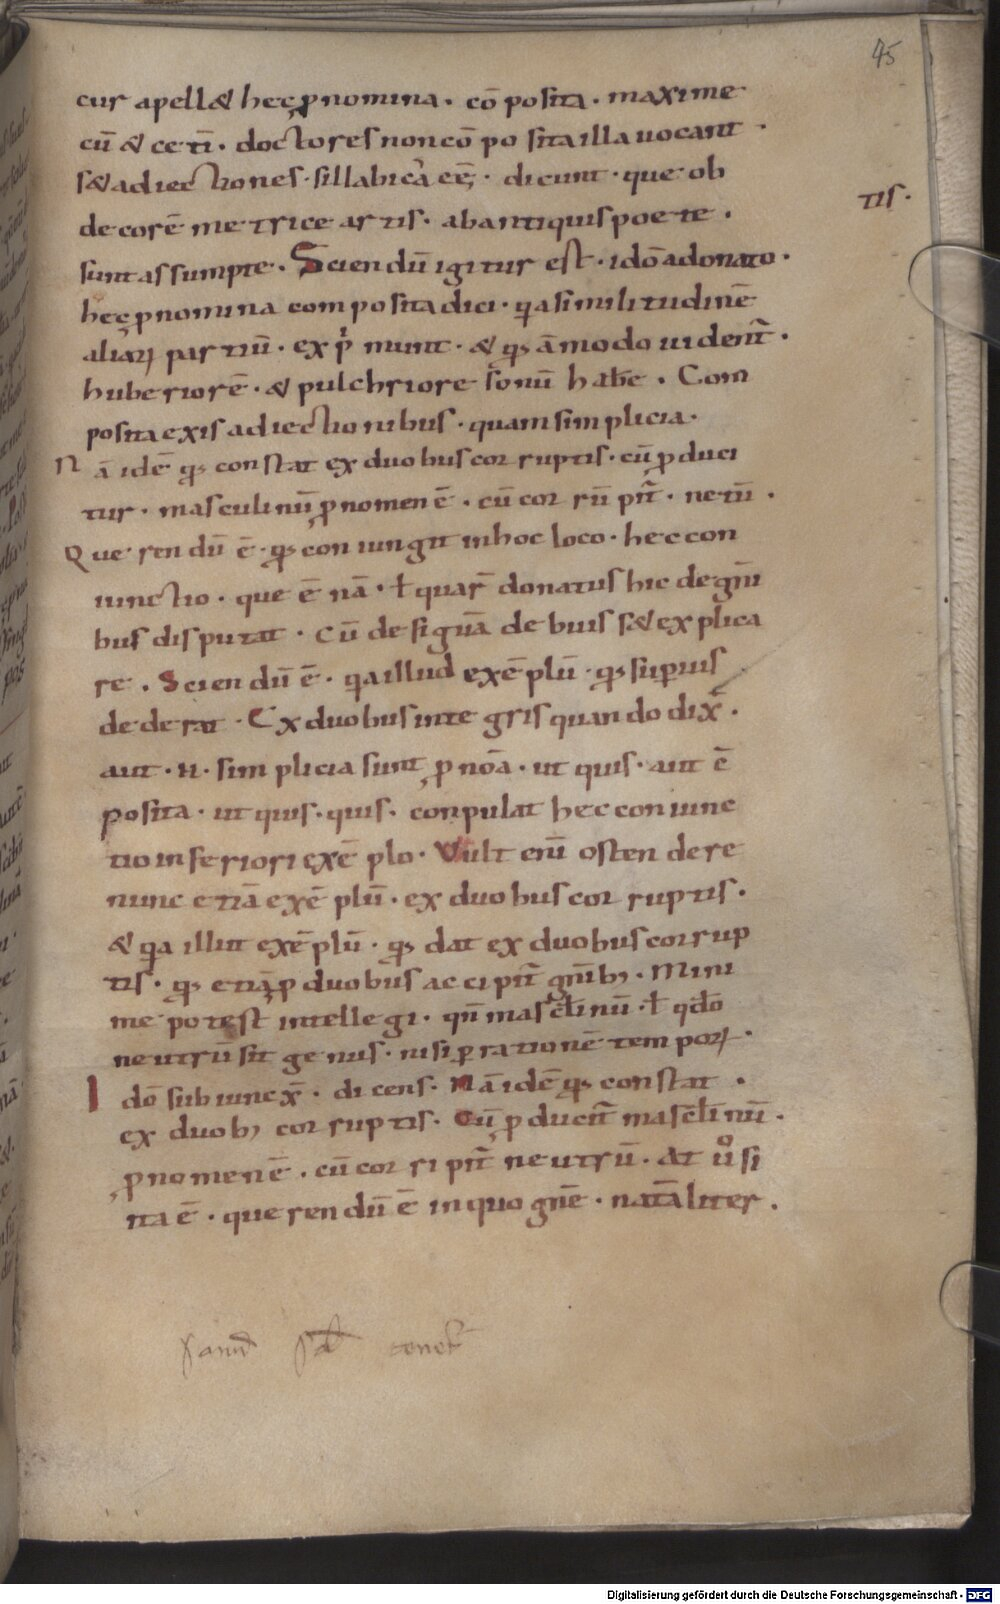 45
cur apell& hec ꝓnomina · cō posita · maxime
cū & ceti̅ · doctores non cō posita illa uocant ·
s& adiectiones · sillabica̅ e̅e̅ · dicunt · que ob
decorē metrice artis · ab antiquis poete ·
tis ·
sunt assumpte · Sciendū igitur est · idō a donato ·
hec ꝓnomina composita dici · q̅a similitudinē
aliaꝝ partiū · exp̍munt · & qꝫ āmodo uident̅ ·
huberiorē · & pulchriore sonū habe̅ · Com
posita ex is adiectionibus · quam simplicia ·
Nā idē qꝫ constat ex duobus corruptis · cū ꝓduci
tur · masculinū ꝓnomen ē · cū corrūpit̅ · netū ·
Querendū ē · qꝫ coniungit in hoc loco · hec con
iunctio · que ē nā · ł quar̅ donatus hic de gn̅i
bus disputat · Cū de figura̅ debuis s& explica
re · Sciendū ē · q̅a illud exēplū · qꝫ suꝑius
dederat · Ex duobus integris quando dix̅ ·
aut · N · simplicia sunt ꝓnōa · ut quis · aut c̅
posita · ut quis · quis · conpulat hec coniunc
tio inferiori exēplo · Vult eni̅ ostendere
nunc etiā exēplū · ex duobus corruptis ·
& q̅a illut exēplū · qꝫ dat ex duobus corrup
tis · qꝫ etiā ꝓ duobus accipit̅ gn̅ibꝫ · Mini
me potest intellegi · qn̅ mascl̅inū · ł q̅dō
neutrū sit genus · nisi ꝑ rationē tempoꝝ ·
Idō subiunx̅ · dicens · Nā idē qꝫ constat ·
ex duobꝫ corruptis · Cū ꝓducit̅ mascl̅inū ·
ꝓnomen ē · cū corripit̅ neutrū · At uͦ si
ita ē · querendū ē in quo gn̅e · natālīter ·
Digitalisierung gefördert durch die Deutsche Forschungsgemeinschaft - DFG